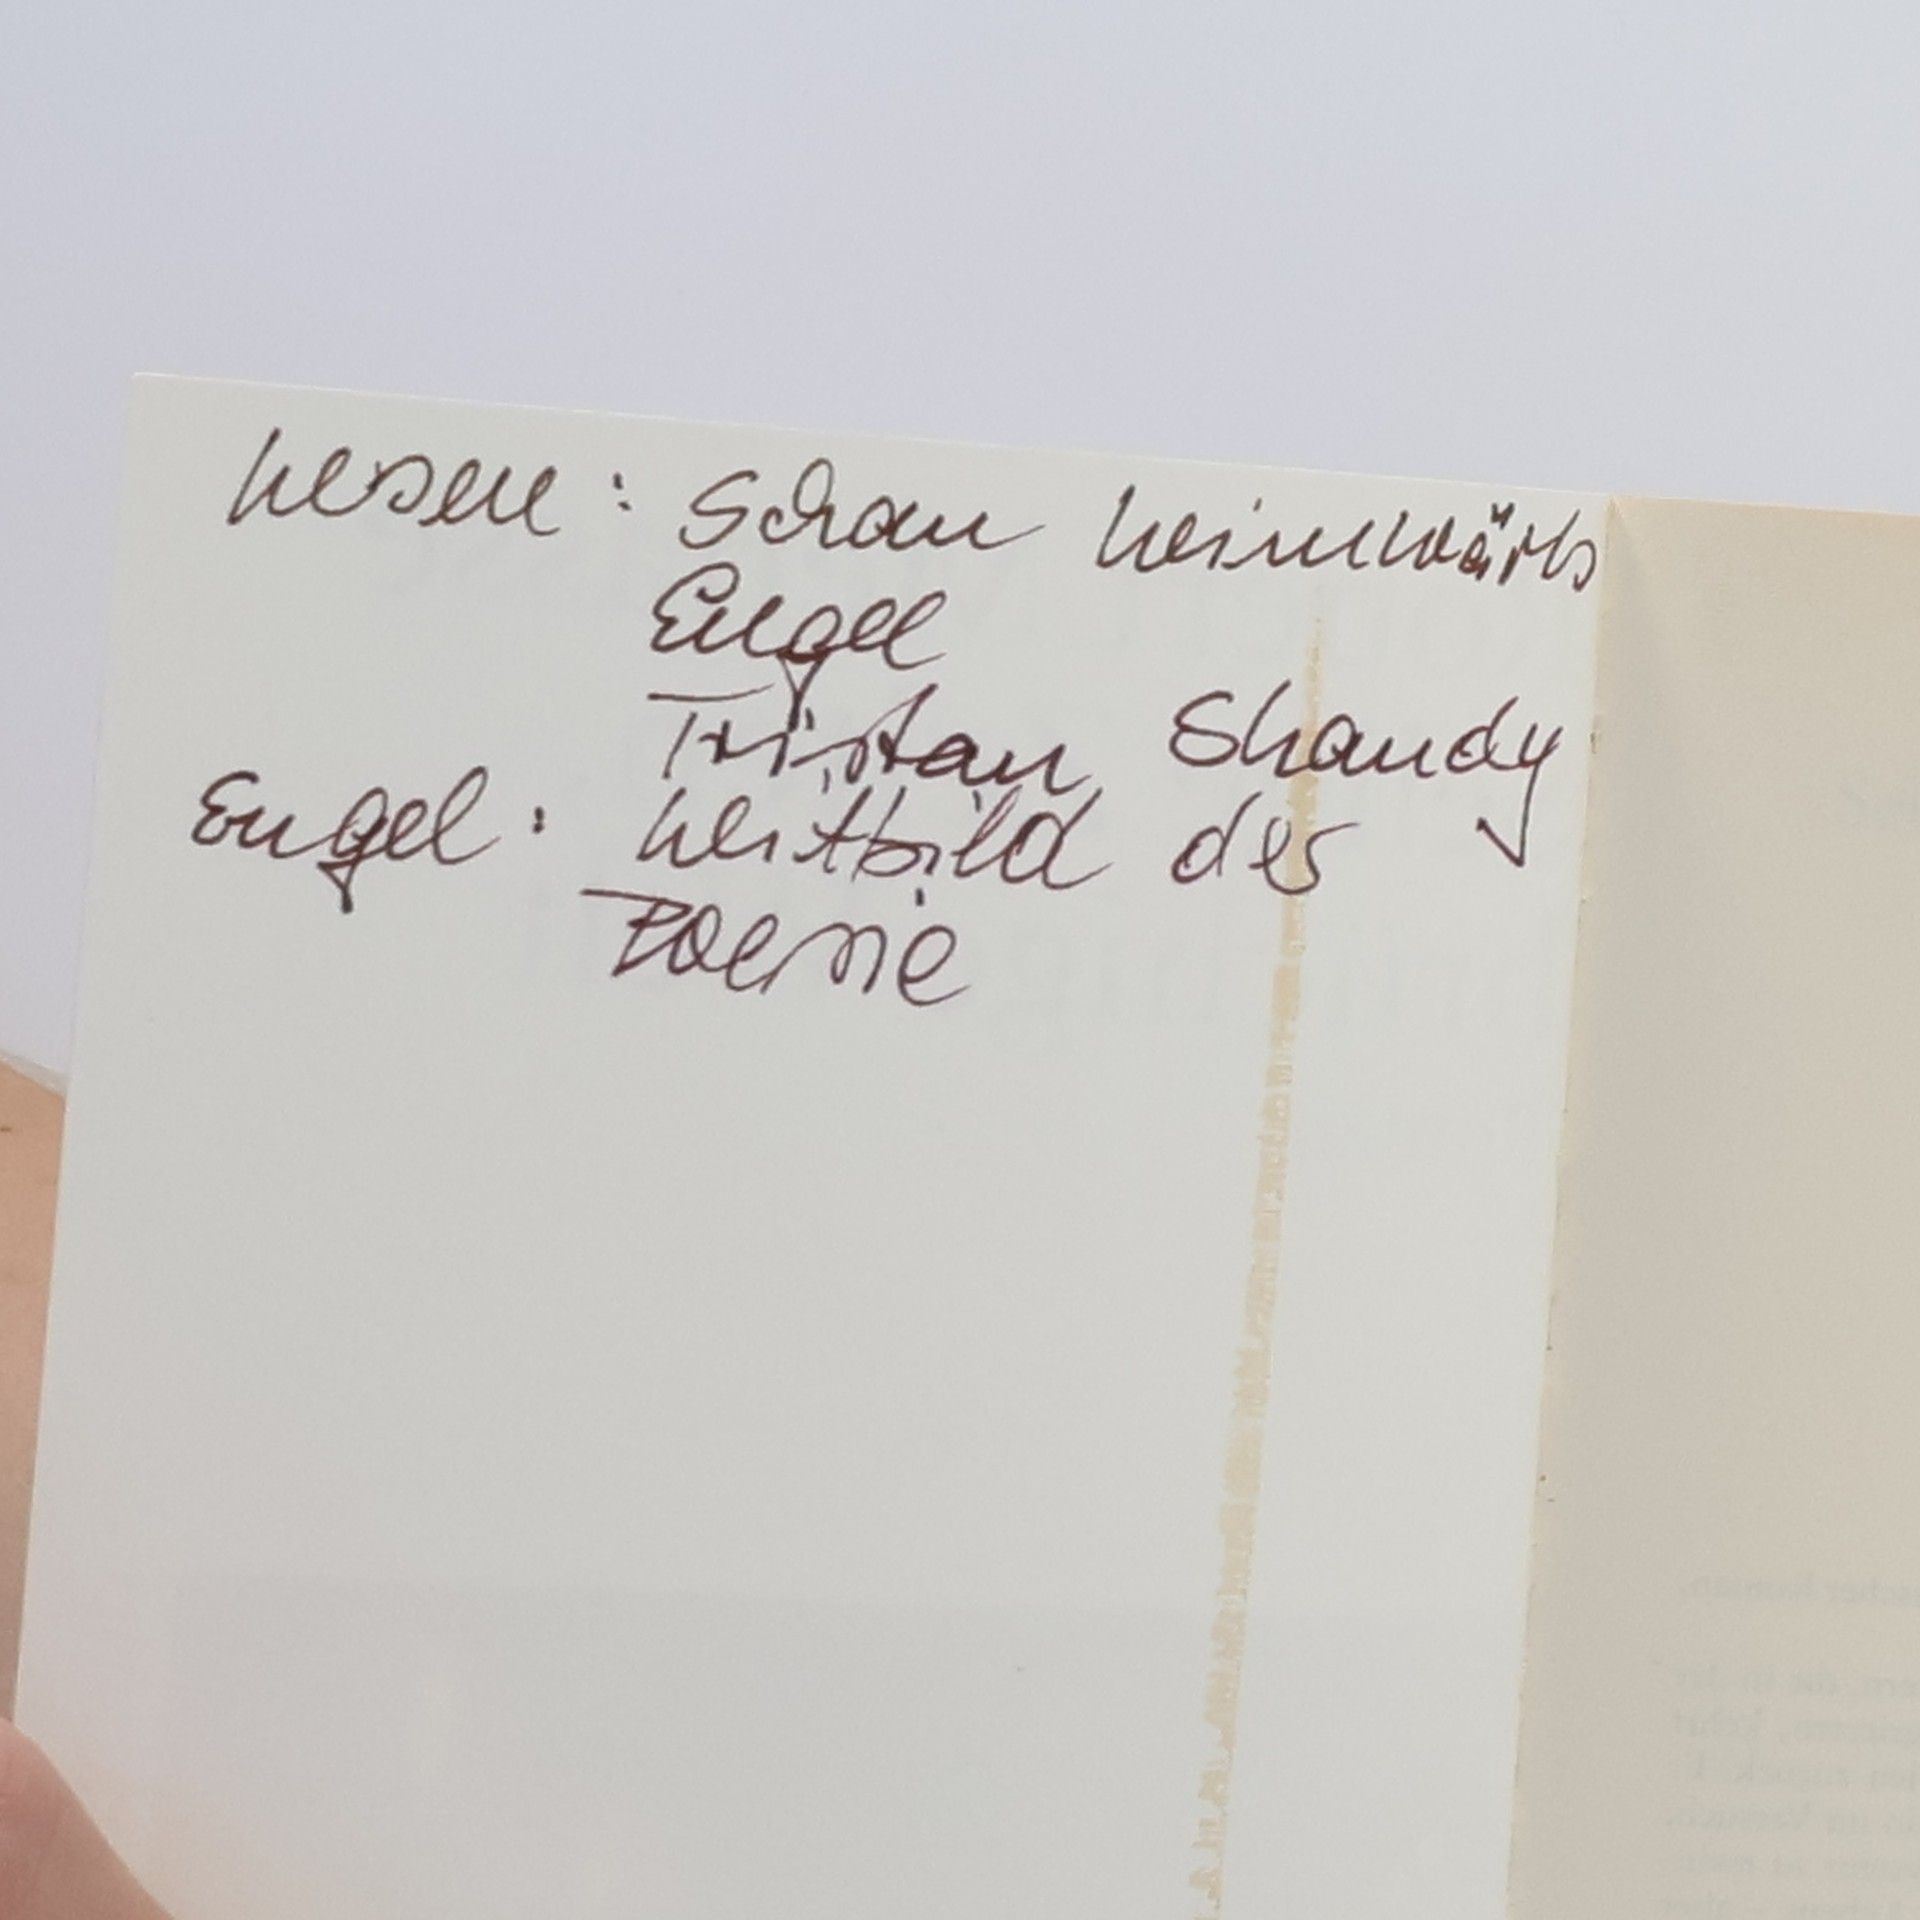 Lesen: Schau heimwärts
Engel
Tristan Shandy
Engel: Leitbild der
Poesie